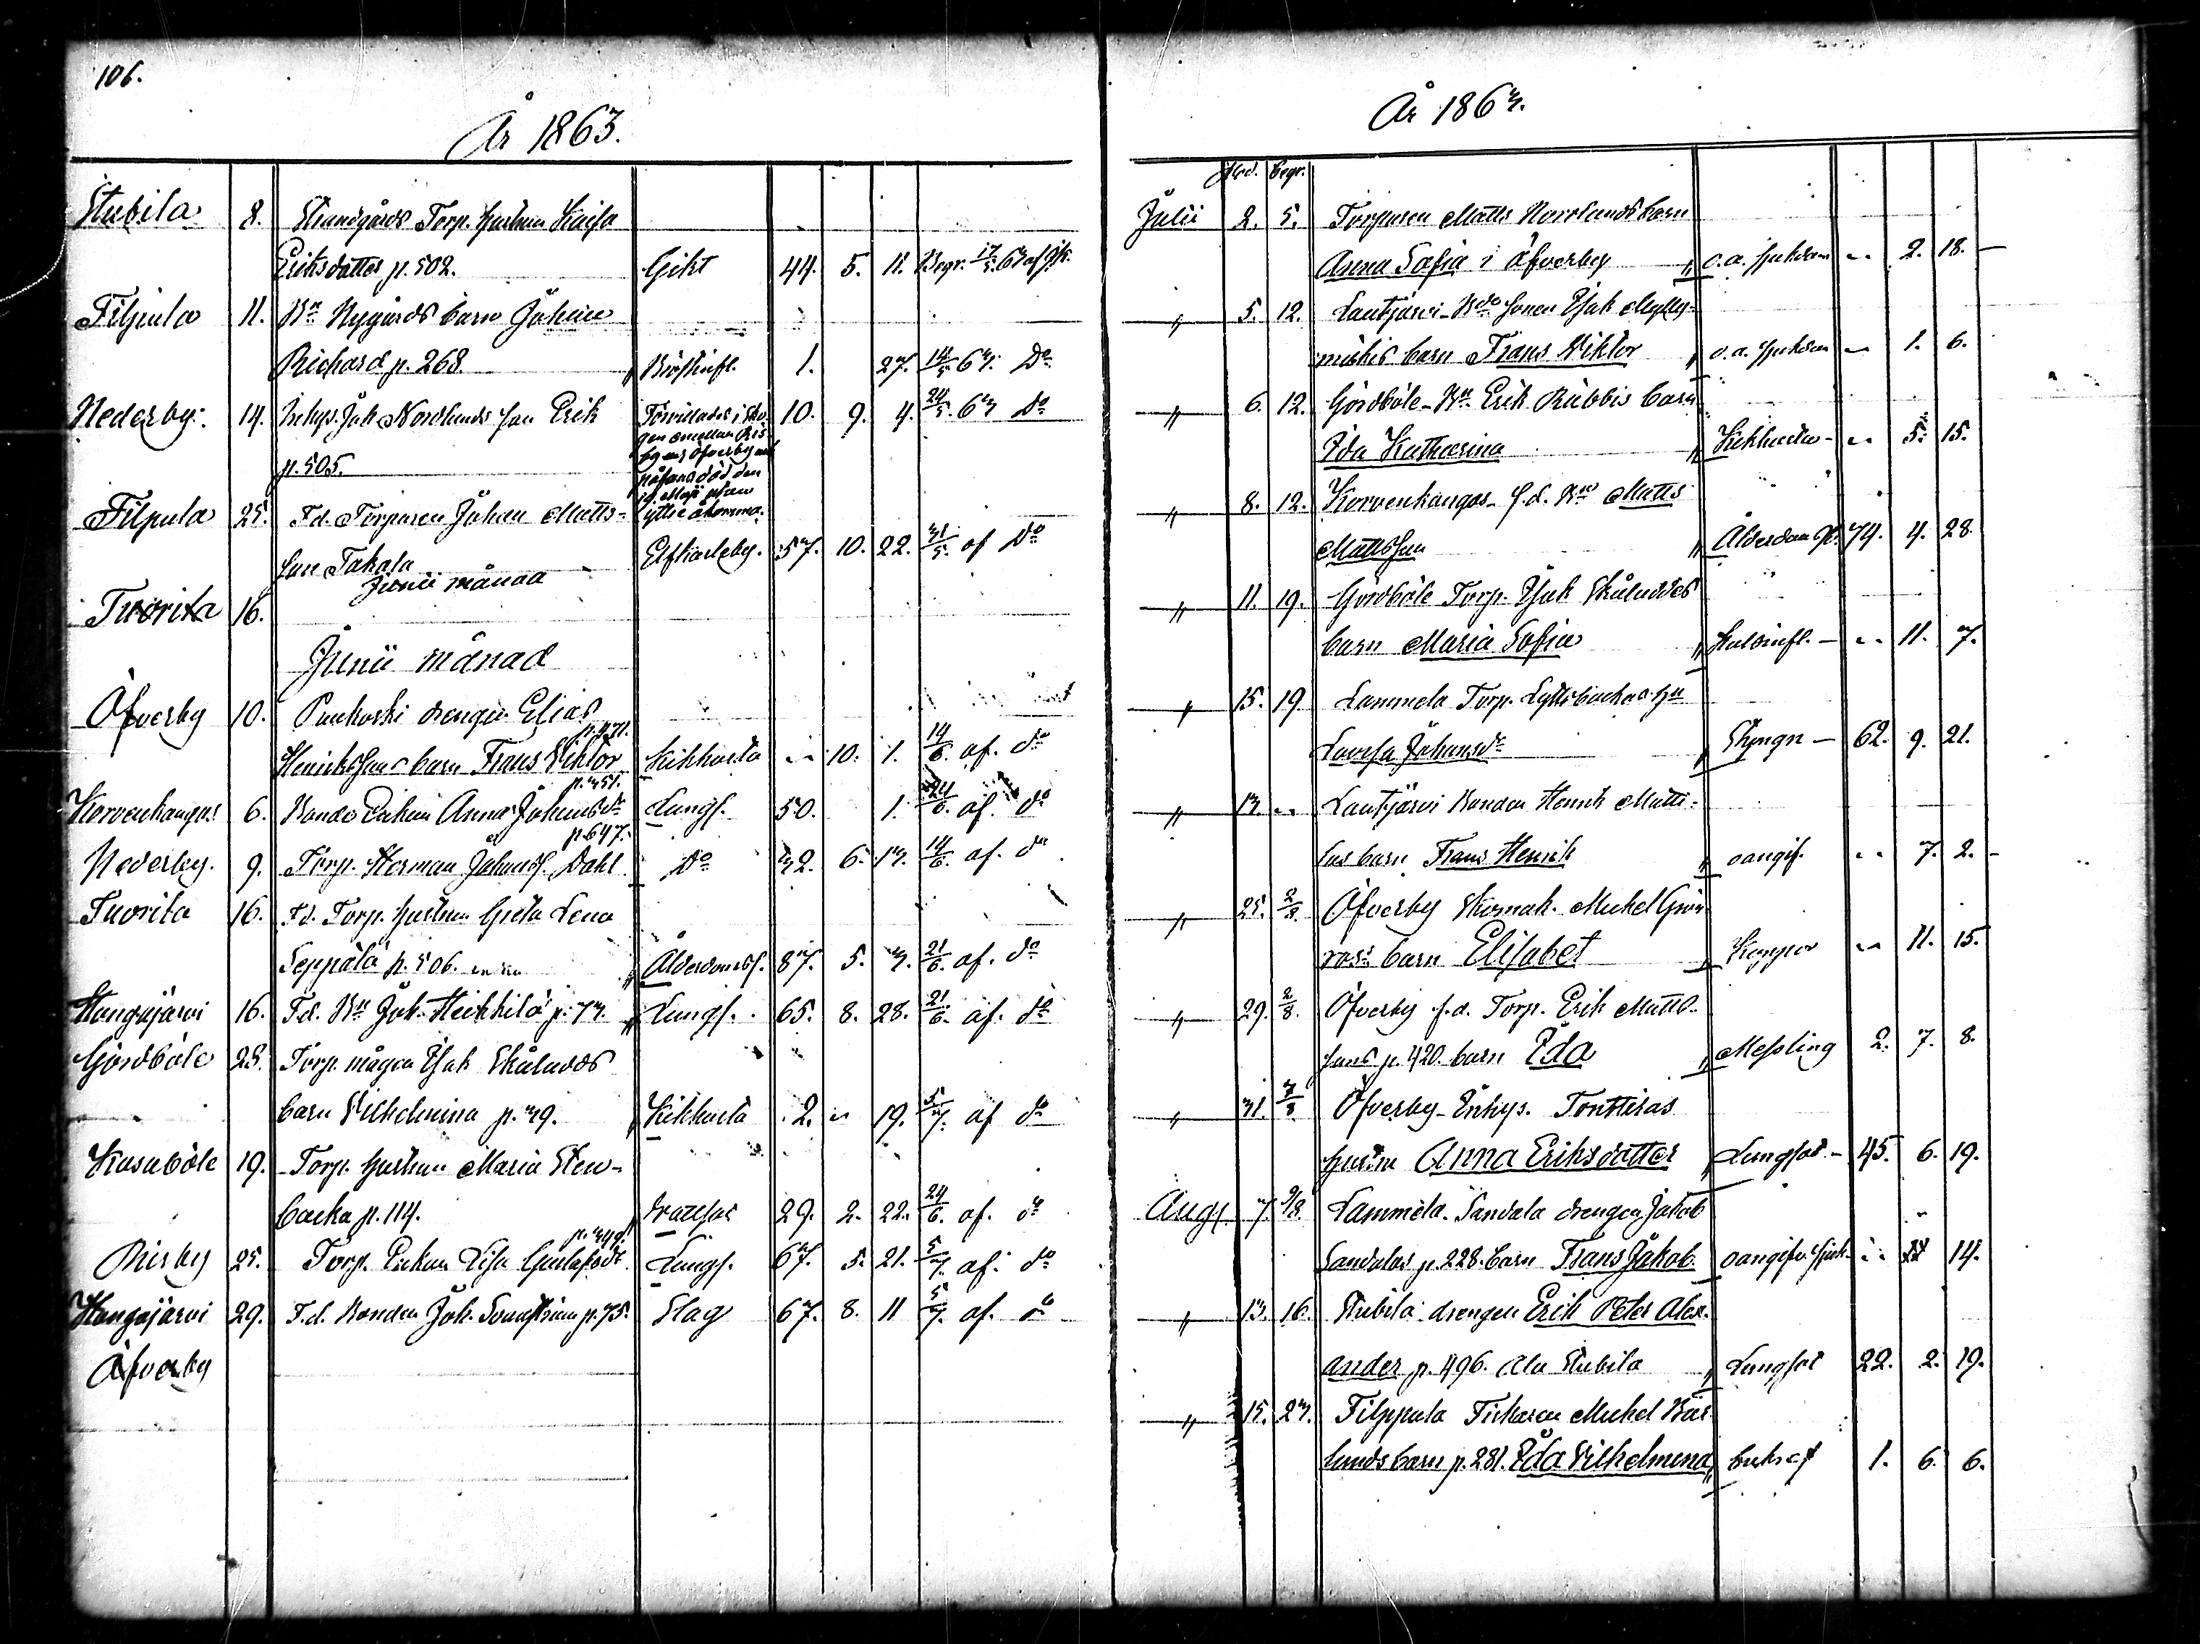 106.
År 1863.
Stubila 8. Strandgårds Torp. hustrun Kaisa
Eriksdotter p. 502. Gikt 44. 5. 11. Begr. 17/5. 63 af Gfk.
Filpula 11. Bn Nygårds barn Johan
Richard p. 268. Bröstinfl. 1. 27. 14/5 63. Do
Nederby. 14. Inhys. Joh. Nordlunds son Erik Förvillades i sko- 10. 9. 4. 24/5. 63 Do
gen emellan Ris
by och Öfverby och
p. 505. påfans död den
19. Maji utan
Filpula 25. Fd. Torparen Johan Matts- yttre åkomma.
son Takala Elfkarleby. 57. 10. 22. 31/5. af Do
Junii månad
Tuorita 16.
Junii månad
Öfverby 10. Punkoski drengen Elias
p. 471.
Henrikssons barn Frans Viktor Kikhosta " 10. 1. 14/6. af. do
p. 351.
Korvenkangas 6. Bonde Enkan Anna Johansdr Lungs. 50. 1. 24/6. af. do
p. 647.
Nederby. 9. Torp. Herman Johanss. Dahl Do 32. 6. 13. 14/6. af. do
Tuorila 16. Fd. Torp. hustrun Greta Lena
Seppälä p. 506. Ålderdomsf. 87. 5. 3. 21/6. af. do
Hangasjärvi 16. Fd. Bn Joh. Heikkilä p. 73. Lungs. 65. 8. 28. 21/6. af. do
Gördböle 28. Torp. mågen Isak Skåludds
barn Vilhelmina p. 39. Kikhosta 2. " 19. 5/7. af do
Kasaböle 19. Torp. hustrun Maria Sten-
backa p. 114. 29. 2. 22. 24/6. af. do
p. 349.
Risby 25. Torp. Enkan Lisa Gustafsdr. Lungs. 67. 5. 21. 5/7. af. do
Hangasjärvi 29. F.d. Bonden Joh. Svanström p. 75. Slag 67. 8. 11 5/7. af. do
Öfverby
År 1863.
död. begr.
Julii 2. 5. Torparen Matts Norrlunds barn
Anna Sofia i Öfverby o.a. sjukdom " 2. 18. —
" 5. 12. Lautjärvi Bde sonen Isak Mylly-
mäkis barn Frans Viktor o.a. sjukdom " 1. 6.
" 6. 12. Gördböle Bn Erik Rabbis barn
Ida Katharina Kikhosta - " 5. 15.
" 8. 12. Korvenkangas f.d. Bn Matts
Mattsson Ålderdom 74. 4. 28.
" 11. 19. Gördböle Torp. Isak Skåludds
barn Maria Sofia Halsinfl. - " 11. 7.
" 15. 19. Lammela Torp. Lyttsbackas hu
Lovisa Johansdr 62. 9. 21.
" 13. " Lautjärvi Bonden Henrik Matts-
sons barn Frans Henrik oangif. " 7. 2. -
" 25. 2/8. Öfverby Skomak. Mickel Grön
roos barn Elisabet Koppor " 11. 15.
" 29. 2/8. Öfverby f.d. Torp. Erik Matts-
sons p. 420. barn Ida Messling 2. 7. 8.
" 31. 3/8 Öfverby Inhys. Tonttiras
hustru Anna Eriksdotter Lungsot - 45. 6. 19.
Aug. 7. 9/8. Lammela. Sandala drengen Jakob
Sandalas p. 228. barn Frans Jakob. oangifv. sjuk " 14.
" 13. 16. Stubila drengen Erik Peter Alex-
ander p. 496. Ala Stubila Lungsot 22. 2. 19.
" 15. 23. Filppula Fiskaren Mickel Bäs-
lunds barn p. 281. Ida Vilhelmina buksof 1. 6. 6.